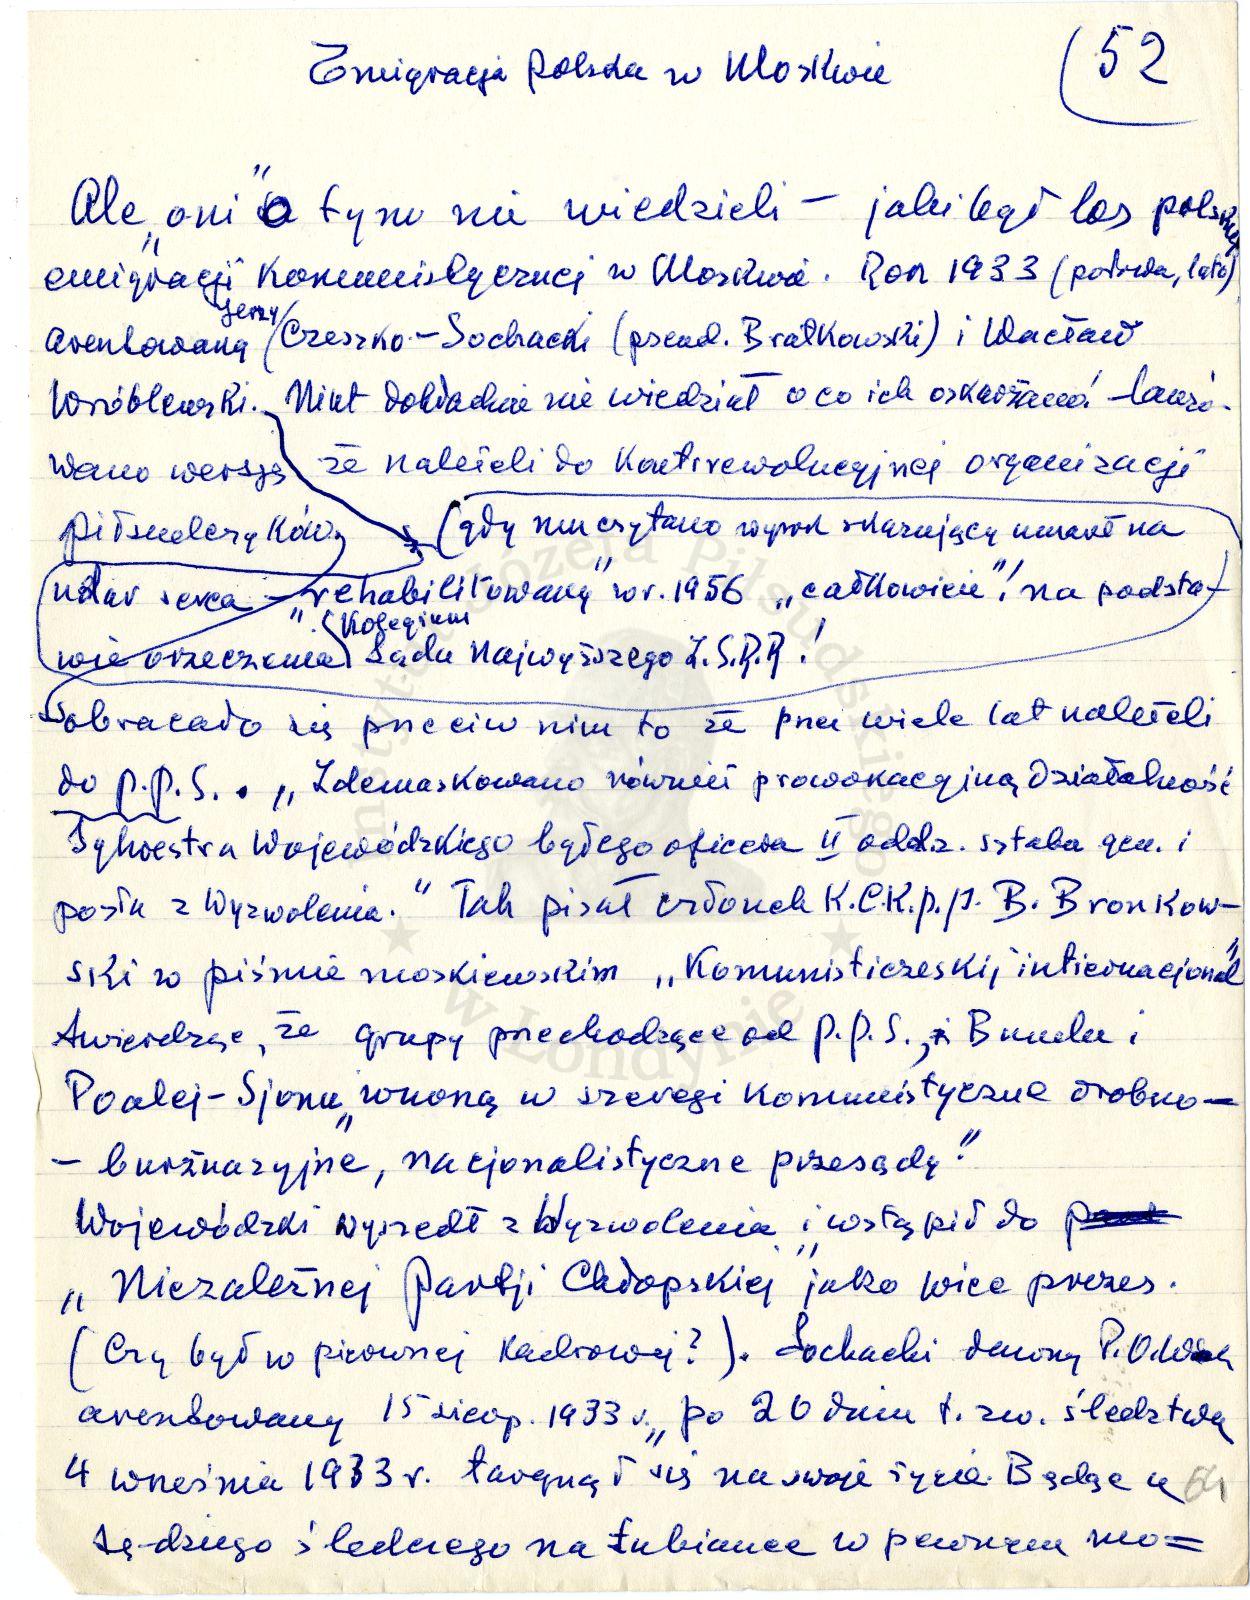 Emigracja Polska w Moskwie
52
Ale „oni" o tym nie wiedzieli – jaki był los polskiej
emigracji komunistycznej w Moskwie. Rok 1933 (połowa, lato)
Jerzy
aresztowany Czeszko-Sochacki (pseud. Bratkowski) i Wacław
Wróblewski. Nikt dokładnie nie wiedział o co ich oskarżano! lanso-
wano wersję że należeli do kontrrewolucyjnej organizacji
piłsudczyków,
(gdy mu czytano wyrok skazujący umarł na
udar serca – „rehabilitowany" w r. 1956 „całkowicie"! na podsta-
Kolegium
wie orzeczenia Sądu Najwyższego Z.S.R.R!
obracało się przeciw nim to że przez wiele lat należeli
do P.P.S. . „Zdemaskowano również prowokacyjną działalność
Sylwestra Wojewódzkiego byłego oficera II oddz. sztabu gen. i
posła z Wyzwolenia." Tak pisał członek K.C.K.P.P. B. Bronkow-
ski w piśmie moskiewskim „Komunisticzeskij internacjonał"
twierdząc, że grupy przechodzące od P.P.S., Bundu i
Poalej-Sjonu „wnoszą w szeregi komunistyczne drobno-
- burżuazyjne, nacjonalistyczne przesądy"
Wojewódzki wyszedł z Wyzwolenia i wstąpił do
„Niezależnej Partji Chłopskiej" jako wice prezes.
(Czy był w pierwszej Kadrowej?). Sochacki dawny P.O.W.
aresztowany 15 sierp. 1933 r. „po 20 dniu t. zw. śledztwa
4 września 1933 r. targnął się na swoje życie. Będąc u
54
sędziego śledczego na Łubiance w pewnym mo=